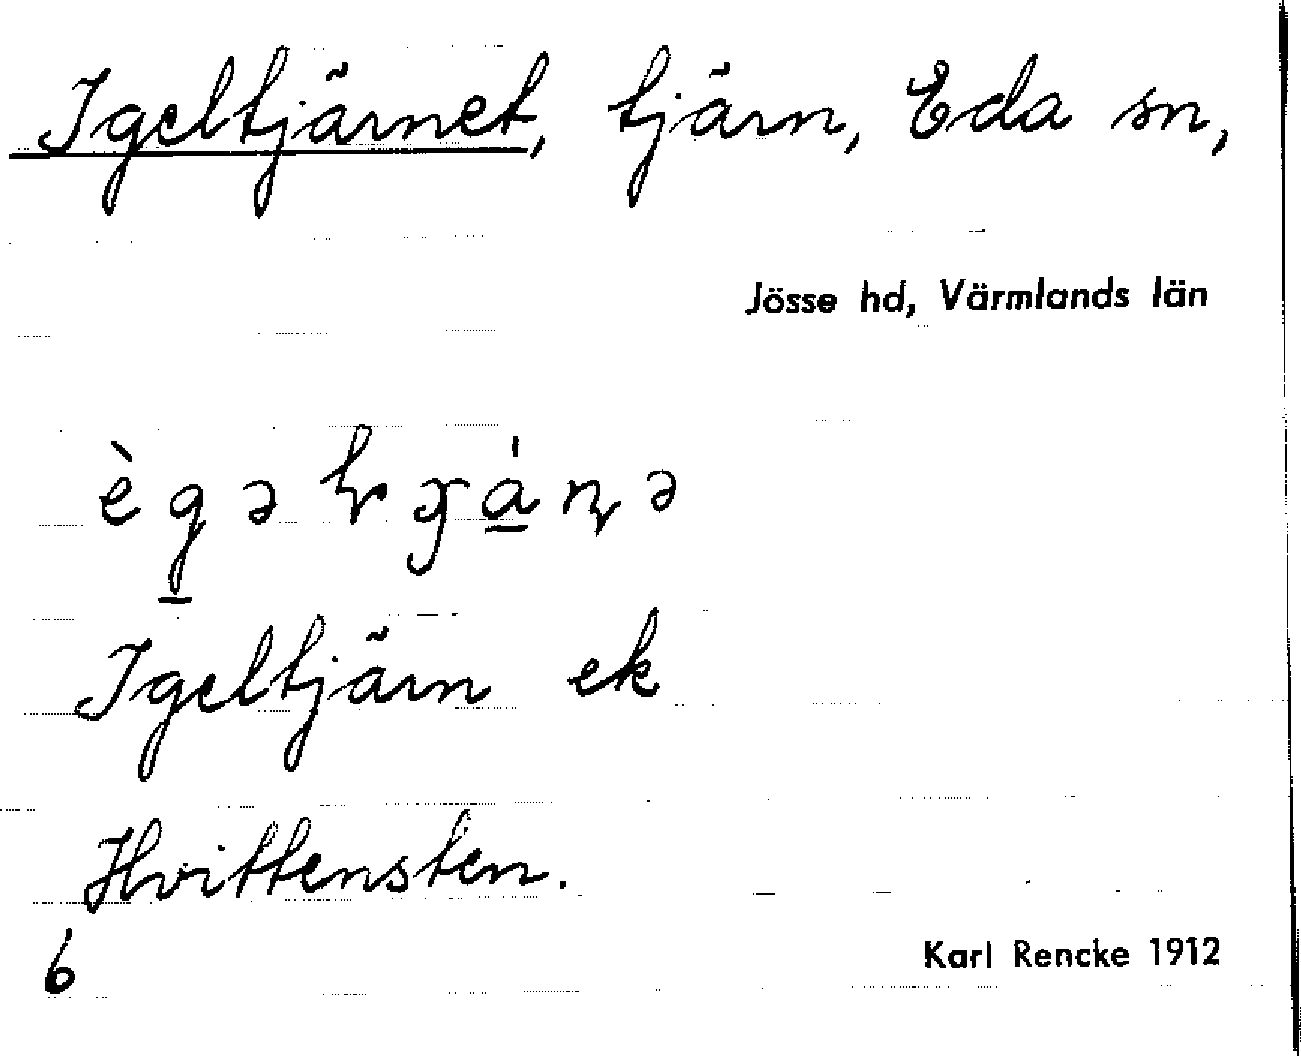 Igeltjärnet, tjärn, Eda sn,
Jösse hd, Värmlands län
Igeltjärn ek
Hvittensten.
6
Karl Rencke 1912